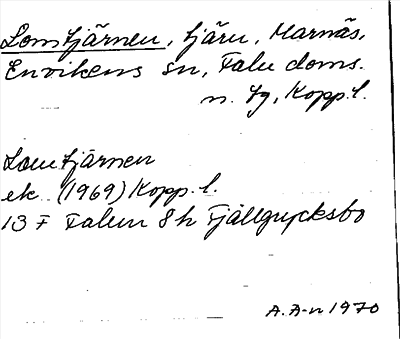 Lomtjärnen, tjärn, Marnäs,
Envikens sn, Falu doms.
n. tg, Kopp. l.
Lomtjärnen
ek. (1969) Kopp. l.
13 F Falun 8 h Fjällgrycksbo
A. A-n 1970